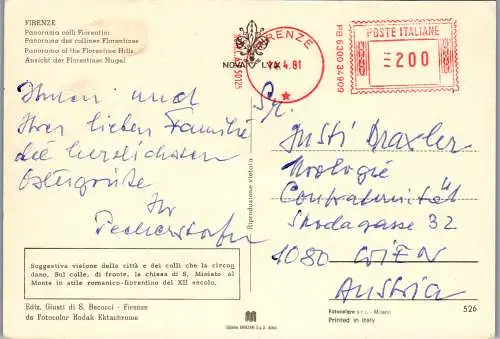 FIRENZE
Panorama colli Fiorentini
Panorama des collines Florentines
Panorama of the Florentine Hills
Ansicht der Florentiner Hugel
Ihnen und
Ihrer lieben Familie
die herzlichsten
Ostergrüße
Ihr
Suggestiva visione della città e dei colli che la circon
dano. Sul colle, di fronte, la chiesa di S. Miniato al
Monte in stile romanico-fiorentino del XII secolo.
Ediz. Giusti di S. Becocci - Firenze
da Fotocolor Kodak Ektachrome
Riproduzione vietata
FIRENZE
NOVA LUX
4.81
POSTE ITALIANE
200
PB 6300 34909
Justi Draxler
Urologie
Confraternität
Skodagasse 32
1080 WIEN
Austria
Fotocolore s.r.l. - Milano
Printed in Italy
526